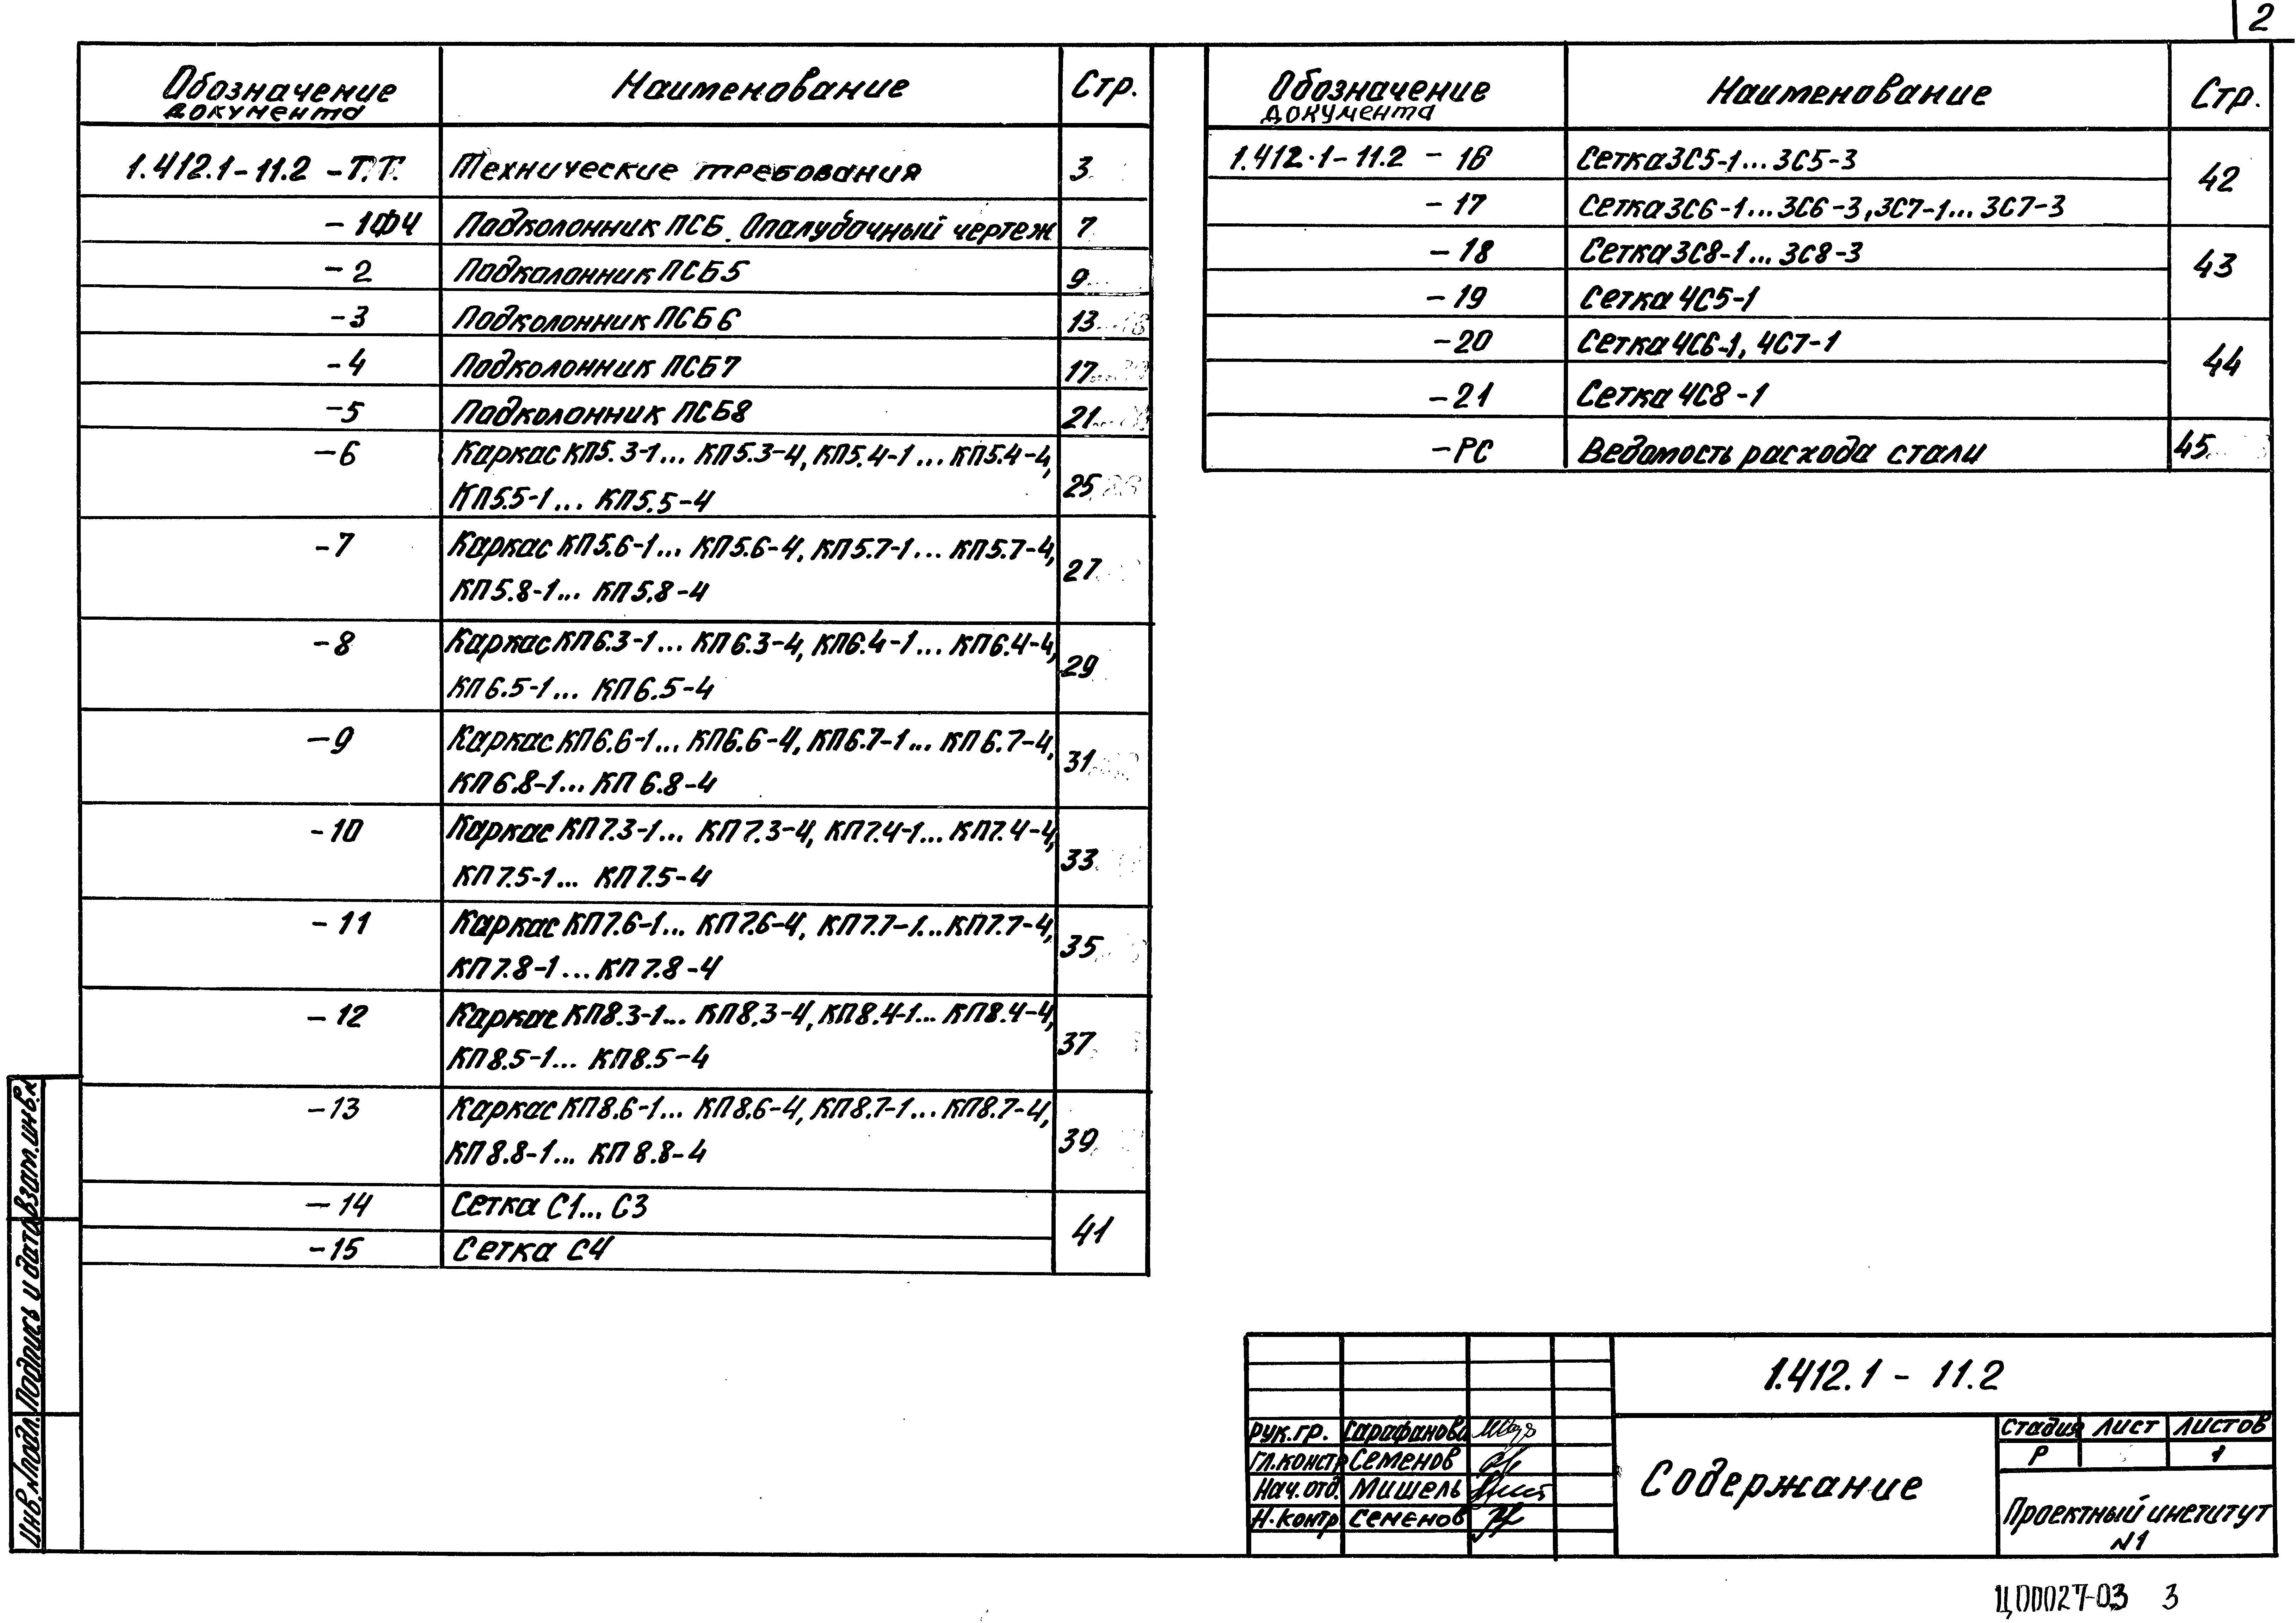 2
Обозначение документа Наименование Стр.
1.412.1-11.2 -Т.Т. Технические требования 3
-1ФЧ Подколонник ПСБ. Опалубочный чертеж 7
-2 Подколонник ПСБ5 9
-3 Подколонник ПСБ6 13
-4 Подколонник ПСБ7 17
-5 Подколонник ПСБ8 21
-6 Каркас КП5.3-1... КП5.3-4, КП5.4-1... КП5.4-4,
КП5.5-1... КП5.5-4 25
-7 Каркас КП5.6-1... КП5.6-4, КП5.7-1... КП5.7-4,
КП5.8-1... КП5.8-4 27
-8 Каркас КП6.3-1... КП6.3-4, КП6.4-1... КП6.4-4,
КП6.5-1... КП6.5-4 29
-9 Каркас КП6.6-1... КП6.6-4, КП6.7-1... КП6.7-4,
КП6.8-1... КП6.8-4 31
-10 Каркас КП7.3-1... КП7.3-4, КП7.4-1... КП7.4-4,
КП7.5-1... КП7.5-4 33
-11 Каркас КП7.6-1... КП7.6-4, КП7.7-1... КП7.7-4,
КП7.8-1... КП7.8-4 35
-12 Каркас КП8.3-1... КП8.3-4, КП8.4-1... КП8.4-4,
КП8.5-1... КП8.5-4 37
-13 Каркас КП8.6-1... КП8.6-4, КП8.7-1... КП8.7-4,
КП8.8-1... КП8.8-4 39
-14 Сетка С1... С3 41
-15 Сетка С4
Обозначение документа Наименование Стр.
1.412.1-11.2 -16 Сетка 3С5-1... 3С5-3 42
-17 Сетка 3С6-1... 3С6-3, 3С7-1... 3С7-3
-18 Сетка 3С8-1... 3С8-3 43
-19 Сетка 4С5-1
-20 Сетка 4С6-1, 4С7-1 44
-21 Сетка 4С8-1
-РС Ведомость расхода стали 45
Взам.инв.№
Подпись и дата
Инв.№подл.
1.412.1-11.2
Рук.гр. Сарафанова
Гл.констр Семенов
Нач.отд. Мишель
Н.контр Семенов
Содержание
Стадия Лист Листов
Р 1
Проектный институт
№1
Ц00027-03 3